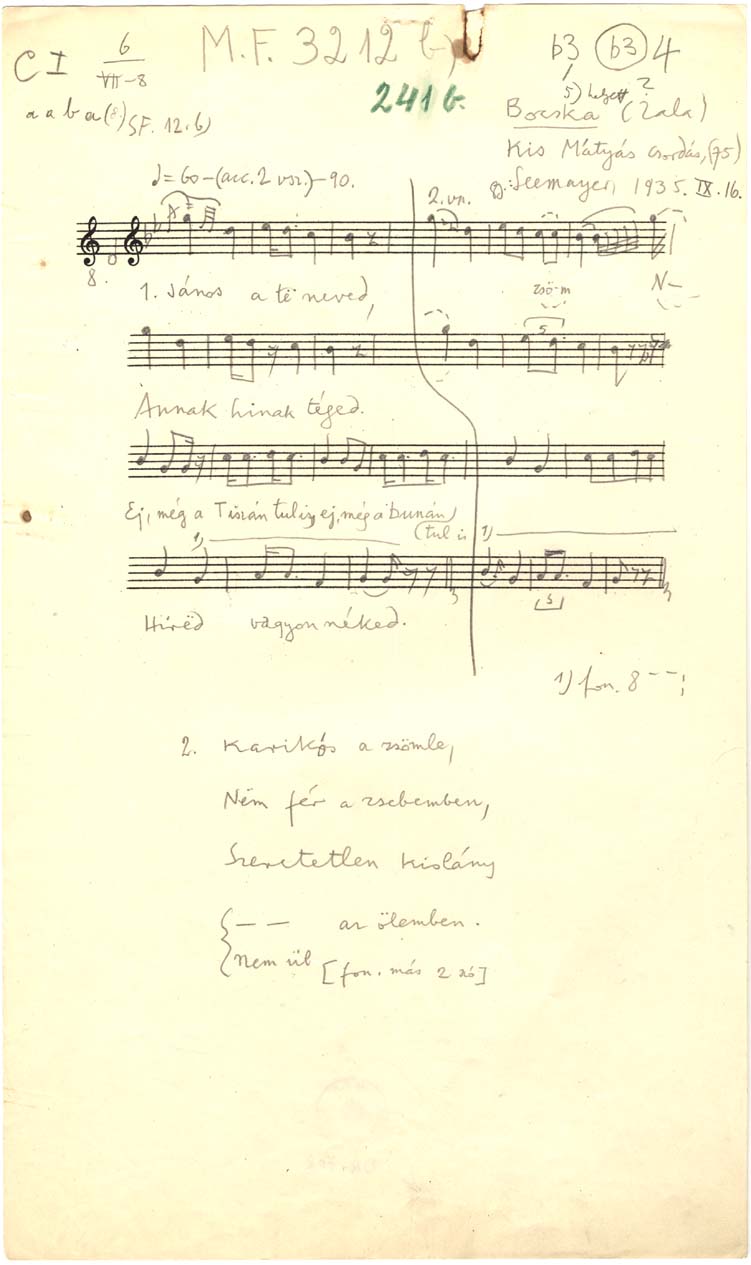 C I 6 / VII-8
M.F. 3212 b)
b3 (b3) 4
5) helyett ?
2416.
a a b a (8.) SF. 12. b)
Bocska (Zala)
Kis Mátyás csordás, (75)
Seemayer, 1935. IX. 16.
♩= 60-(acc. 2 vsz.)-90.
2. vsz.
8.
1. János a të neved,
zsö-m
N-
5
Annak hinak téged.
Ej, még a Tiszán tul is, ej, még a Dunán
(tul is
1)
1)
Hírëd vagyon néked.
3
1) fon. 8 - - ;
2. Karikós a zsömle,
Nëm fér a zsebemben,
Szeretetlen kislány
- - az ölemben.
Nem ül [fon. más 2 szó]